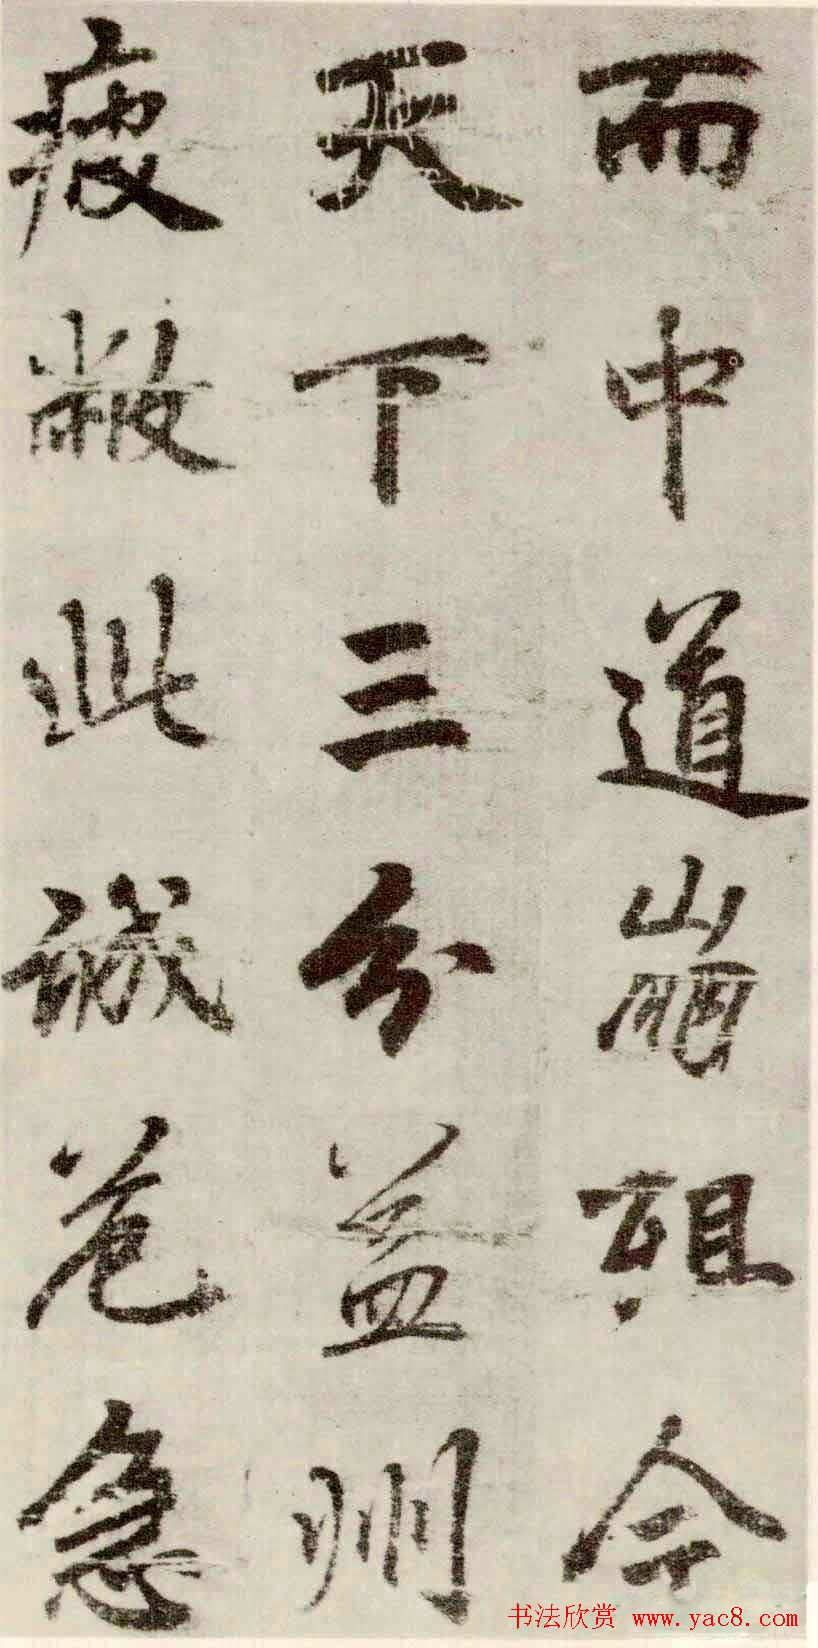 而中道崩殂今
天下三分益州
疲敝此誠危急
书法欣赏 www.yac8.com